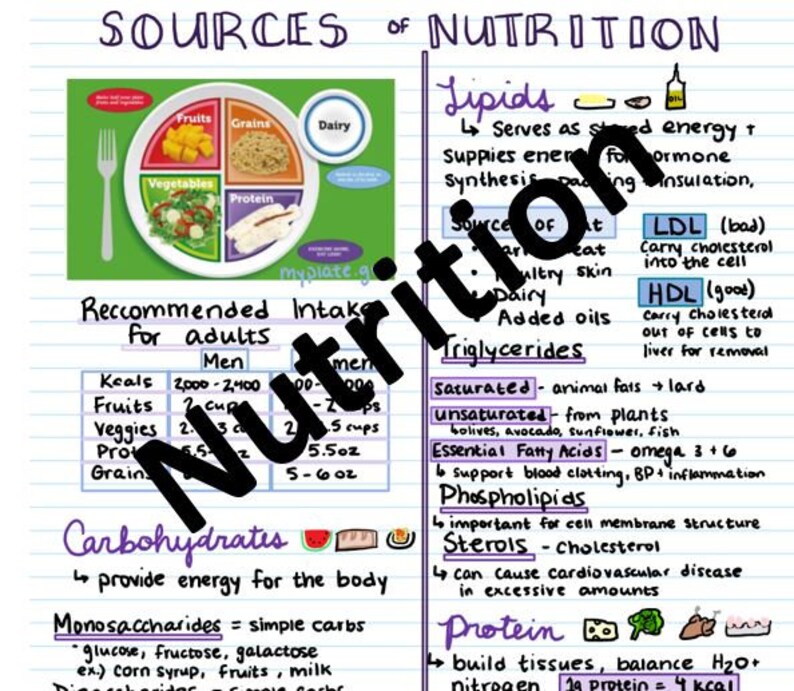 SOURCES OF NUTRITION
Fruits
Grains
Dairy
Vegetables
Protein
myplate.g
Reccommended Intake
for adults
Men
men
Kcals 2,000-2,400
Fruits 2 cups
Veggies 2. 3 .5 cups
Prot 5.5- oz 5.5oz
Grain 5-6 oz
Carbohydrates
↳ provide energy for the body
Monosaccharides = simple carbs
glucose, fructose, galactose
ex.) corn syrup, fruits, milk
Disaccharides = simple carbs
Lipids
OIL
↳ Serves as stored energy +
suppies energy for hormone
synthesis, padding insulation,
Sources of fat
• meat
• Poultry skin
• Dairy
• Added oils
LDL (bad)
Carry cholesterol
into the cell
HDL (good)
carry cholesterol
out of cells to
liver for removal
Triglycerides
saturated - animal fats → lard
unsaturated - from plants
↳ olives, avocado, sunflower, fish
Essential Fatty Acids - omega 3 + 6
↳ support blood clotting, BP + inflammation
Phospholipids
↳ important for cell membrane structure
Sterols - cholesterol
↳ can cause cardiovascular disease
in excessive amounts
Protein
↳ build tissues, balance H2O +
nitrogen 1g protein = 4 kcal
Nutrition